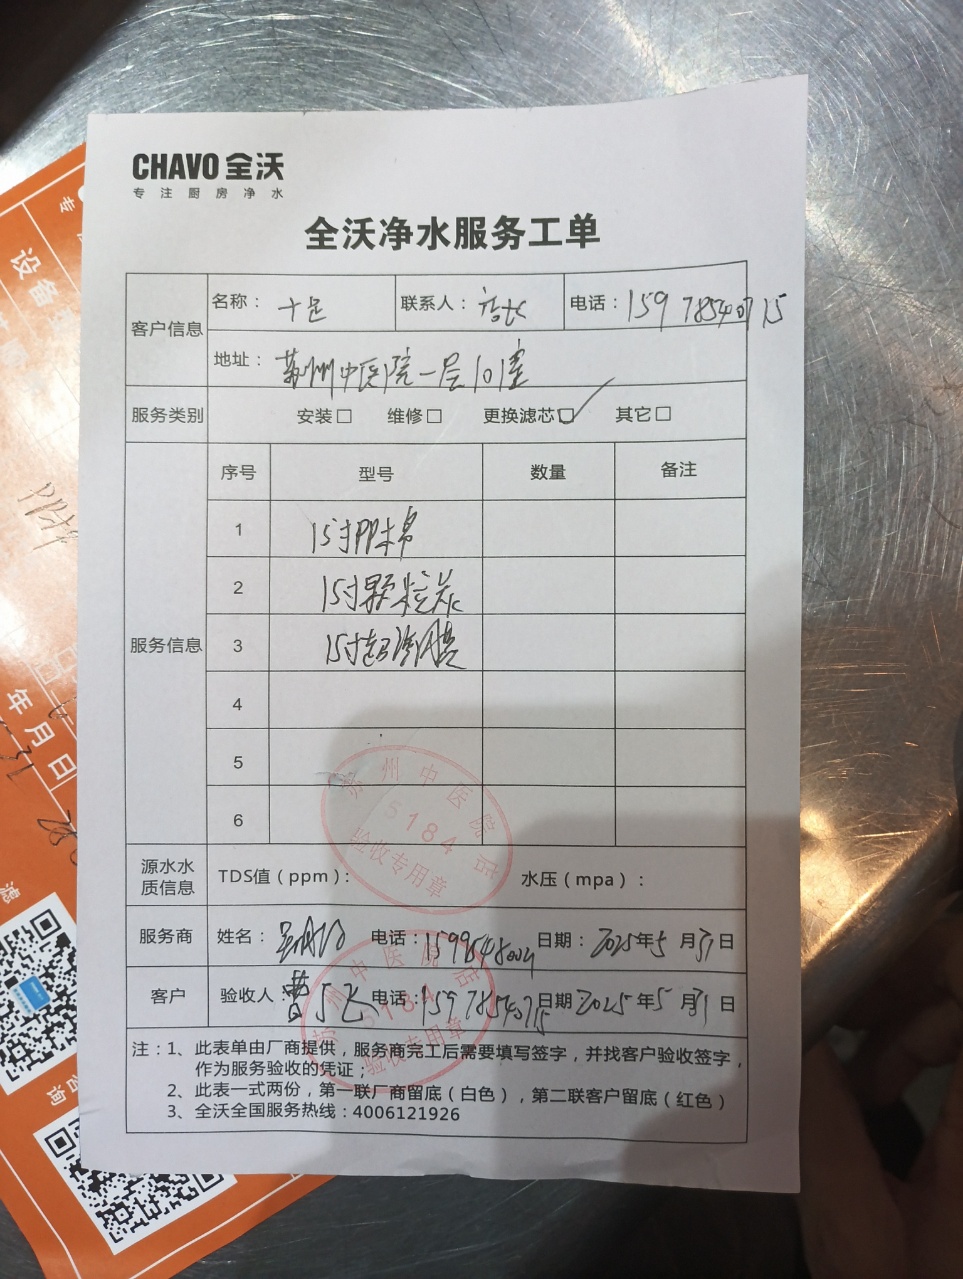 CHAVO 全沃
专 注 厨 房 净 水
全沃净水服务工单
客户信息
名称： 十足
联系人： 店长
电话：15978540715
地址： 苏州中医院一层101室
服务类别
安装□ 维修□ 更换滤芯☑ 其它□
服务信息
序号 型号 数量 备注
1 15寸PP棉
2 15寸颗粒炭
3 15寸超滤膜
4
5
6
苏州中医院店
5184
验收专用章
源水水质信息
TDS值（ppm）： 水压（mpa）：
服务商 姓名： 电话：1599648004 日期：2025年5月31日
客户 验收人： 电话：15978540715 日期 2025年5月31日
苏州中医院店
5184
验收专用章
注：1、此表单由厂商提供，服务商完工后需要填写签字，并找客户验收签字，
作为服务验收的凭证；
2、此表一式两份，第一联厂商留底（白色），第二联客户留底（红色）
3、全沃全国服务热线：4006121926
专
设备
PP棉
年月日
31
滤
咨询